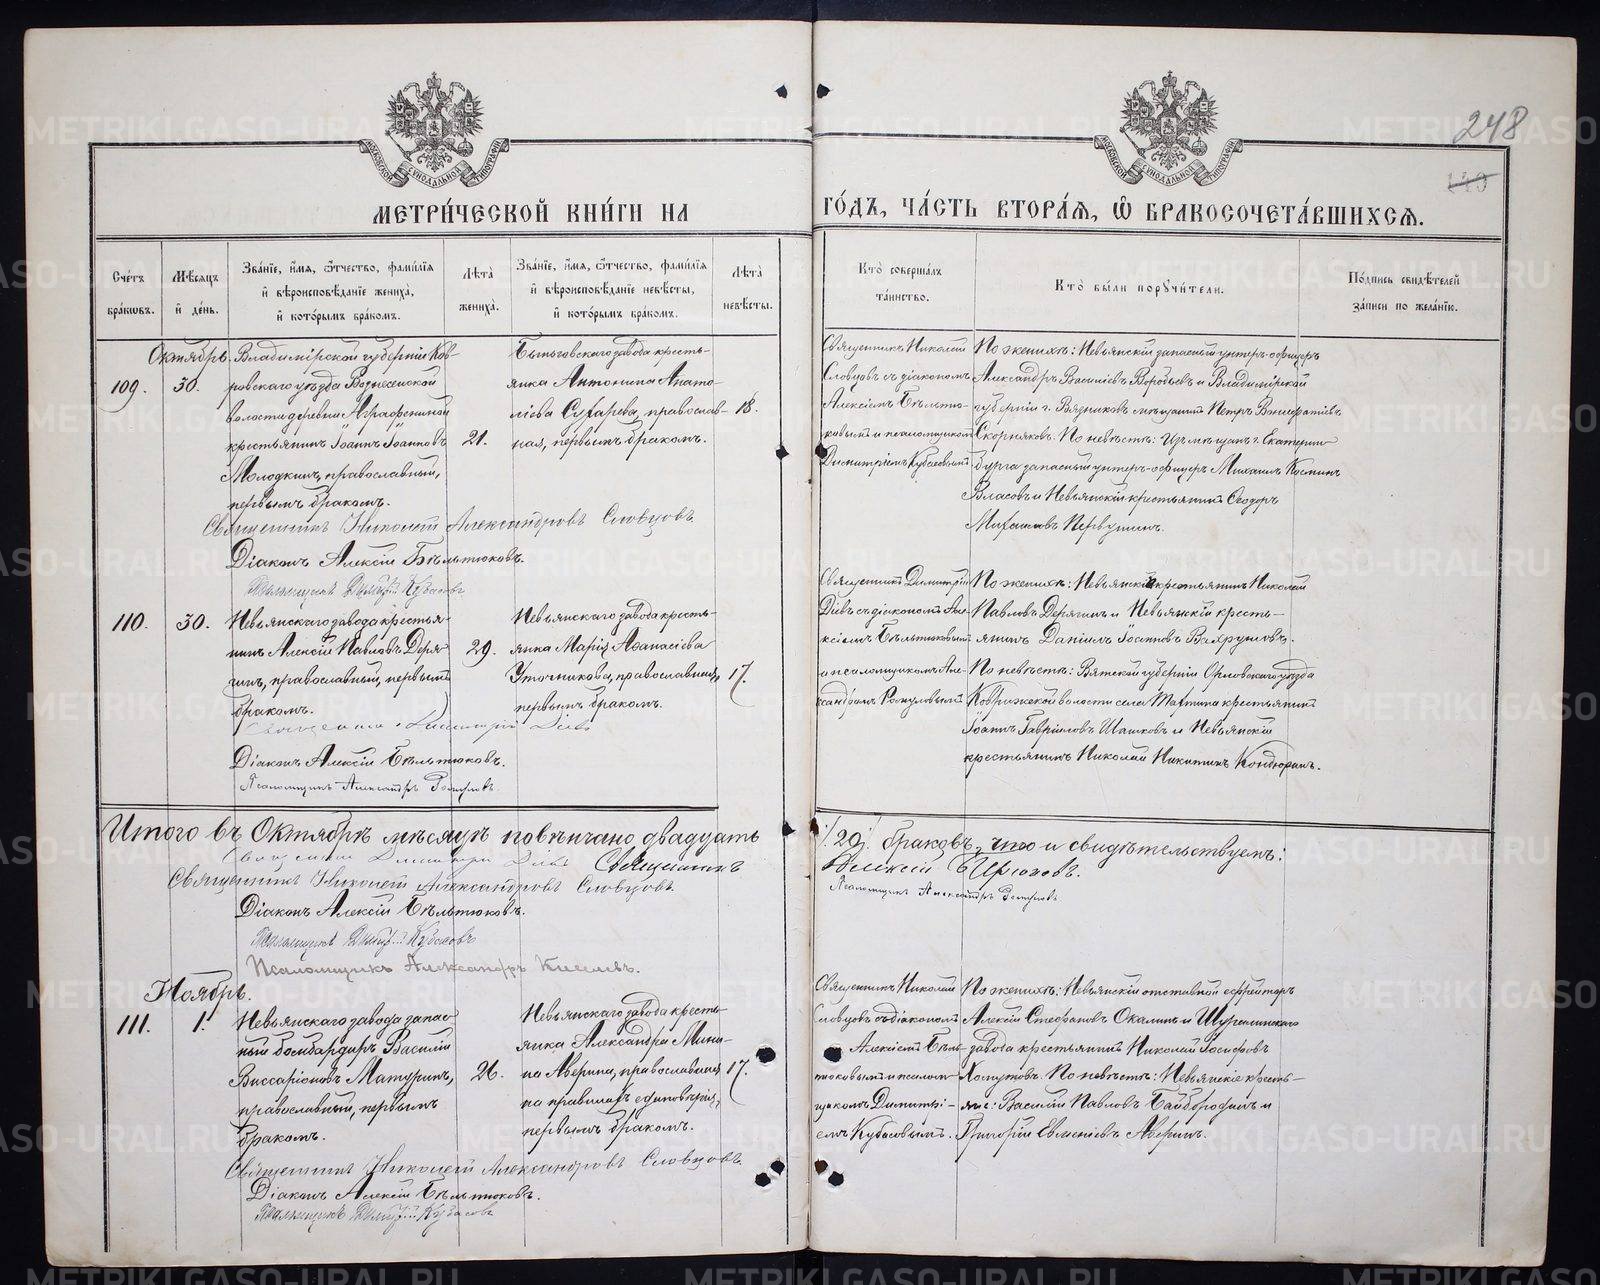 248
140
МЕТРИ́ЧЕСКОЙ КНИ́ГИ НА
ГО́ДЪ, ЧА́СТЬ ВТОРА́Ѧ, Ѽ БРАКОСОЧЕТА́ВШИХСѦ.
Сче́тъ бра́кѡвъ.
Мѣ́сѧцъ и҆ де́нь.
Зва́нїе, и҆́мѧ, ѻ҆́тчество, фамилїѧ и҆ вѣроисповѣ́данїе жениха̀, и҆ кото́рымъ бра́комъ.
Лѣ́та жениха̀.
Зва́нїе, и҆́мѧ, ѻ҆́тчество, фамилїѧ и҆ вѣроисповѣ́данїе невѣ́сты, и҆ кото́рымъ бра́комъ.
Лѣ́та невѣ́сты.
Кто̀ соверша́лъ та́инство.
Кто̀ бы́ли порꙋчи́тели.
По́дпись свидѣ́телей за́писи по жела́нїю.
Октябрь.
109.
30.
Владимірской губерніи Ков-
ровскаго уѣзда Вознесенской
волости деревни Аграфениной
крестьянинъ Іоаннъ Іоанновъ
Молодкинъ, православный,
первымъ бракомъ.
21.
Быньговскаго завода кресть-
янка Антонина Анато-
ліева Сухарева, православ-
ная, первымъ бракомъ.
18.
Священникъ Николай
Словцовъ съ діакономъ
Алексіемъ Бѣльтю-
ковымъ и псаломщикомъ
Димитріемъ Кубасовымъ
По женихѣ: Невьянскій запасный унтеръ-офицеръ
Александръ Васильевъ Воробьевъ и Владимірской
губерніи г. Вязниковъ мѣщанинъ Петръ
Скорняковъ. По невѣстѣ: Изъ мѣщанъ г. Екатерин-
бурга запасный унтеръ-офицеръ Михаилъ Космин
Власовъ и Невьянскій крестьянинъ Ѳеодоръ
Михаиловъ Первушинъ.
Священникъ Николай Александровъ Словцовъ
Діаконъ Алексій Бѣльтюковъ.
Псаломщикъ Димитрій Кубасовъ
110.
30.
Невьянскаго завода крестья-
нинъ Алексій Павловъ Деря-
гинъ, православный, первымъ
бракомъ.
29.
Невьянскаго завода кресть-
янка Марія Аѳанасіева
Уточникова, православная,
первымъ бракомъ.
17.
Священникъ Димитрій
Діевъ съ діакономъ Але-
ксіемъ Бѣльтюковымъ
и псаломщикомъ Але-
ксандромъ Ромуловымъ
По женихѣ: Невьянскій крестьянинъ Николай
Павловъ Дерягинъ и Невьянскій кресть-
янинъ Даніилъ Іоанновъ Вахрушовъ.
По невѣстѣ: Вятской губерніи Орловскаго уѣзда
волости села крестьянинъ
Іоаннъ Гавріиловъ Шашковъ и Невьянскій
крестьянинъ Николай Никитинъ Кондюринъ.
Священникъ Димитрій Діевъ
Діаконъ Алексій Бѣльтюковъ.
Псаломщикъ Александръ Ромуловъ
Итого въ Октябрѣ мѣсяцѣ повѣнчано двадцать
/20/ браковъ, что и свидѣтельствуемъ:
Священникъ Димитрій Діевъ Священникъ
Алексій Бирюковъ.
Священникъ Николай Александровъ Словцовъ
Псаломщикъ Александръ Ромуловъ
Діаконъ Алексій Бѣльтюковъ.
Псаломщикъ Димитрій Кубасовъ
Псаломщикъ Александръ Киселевъ.
Ноябрь.
111.
1.
Невьянскаго завода запас-
ный бомбардиръ Василій
Виссаріоновъ Матуринъ,
православный, первымъ
бракомъ.
26.
Невьянскаго завода кресть-
янка Александра Мини-
на Аверина, православная
на правилахъ единовѣрія,
первымъ бракомъ.
17.
Священникъ Николай
Словцовъ съ діакономъ
Алексіемъ Бѣль-
тюковымъ и псалом-
щикомъ Димитрі-
емъ Кубасовымъ.
По женихѣ: Невьянскій отставной ефрейторъ
Алексій Стефановъ Окалинъ и Шуралинскаго
завода крестьянинъ Николай Іосифовъ
Хомутовъ. По невѣстѣ: Невьянскіе кресть-
яне: Василій Павловъ Байбородинъ и
Григорій Евменіевъ Аверинъ.
Священникъ Николай Александровъ Словцовъ.
Діаконъ Алексій Бѣльтюковъ.
Псаломщикъ Димитрій Кубасовъ
METRIKI.GASO-URAL.RU